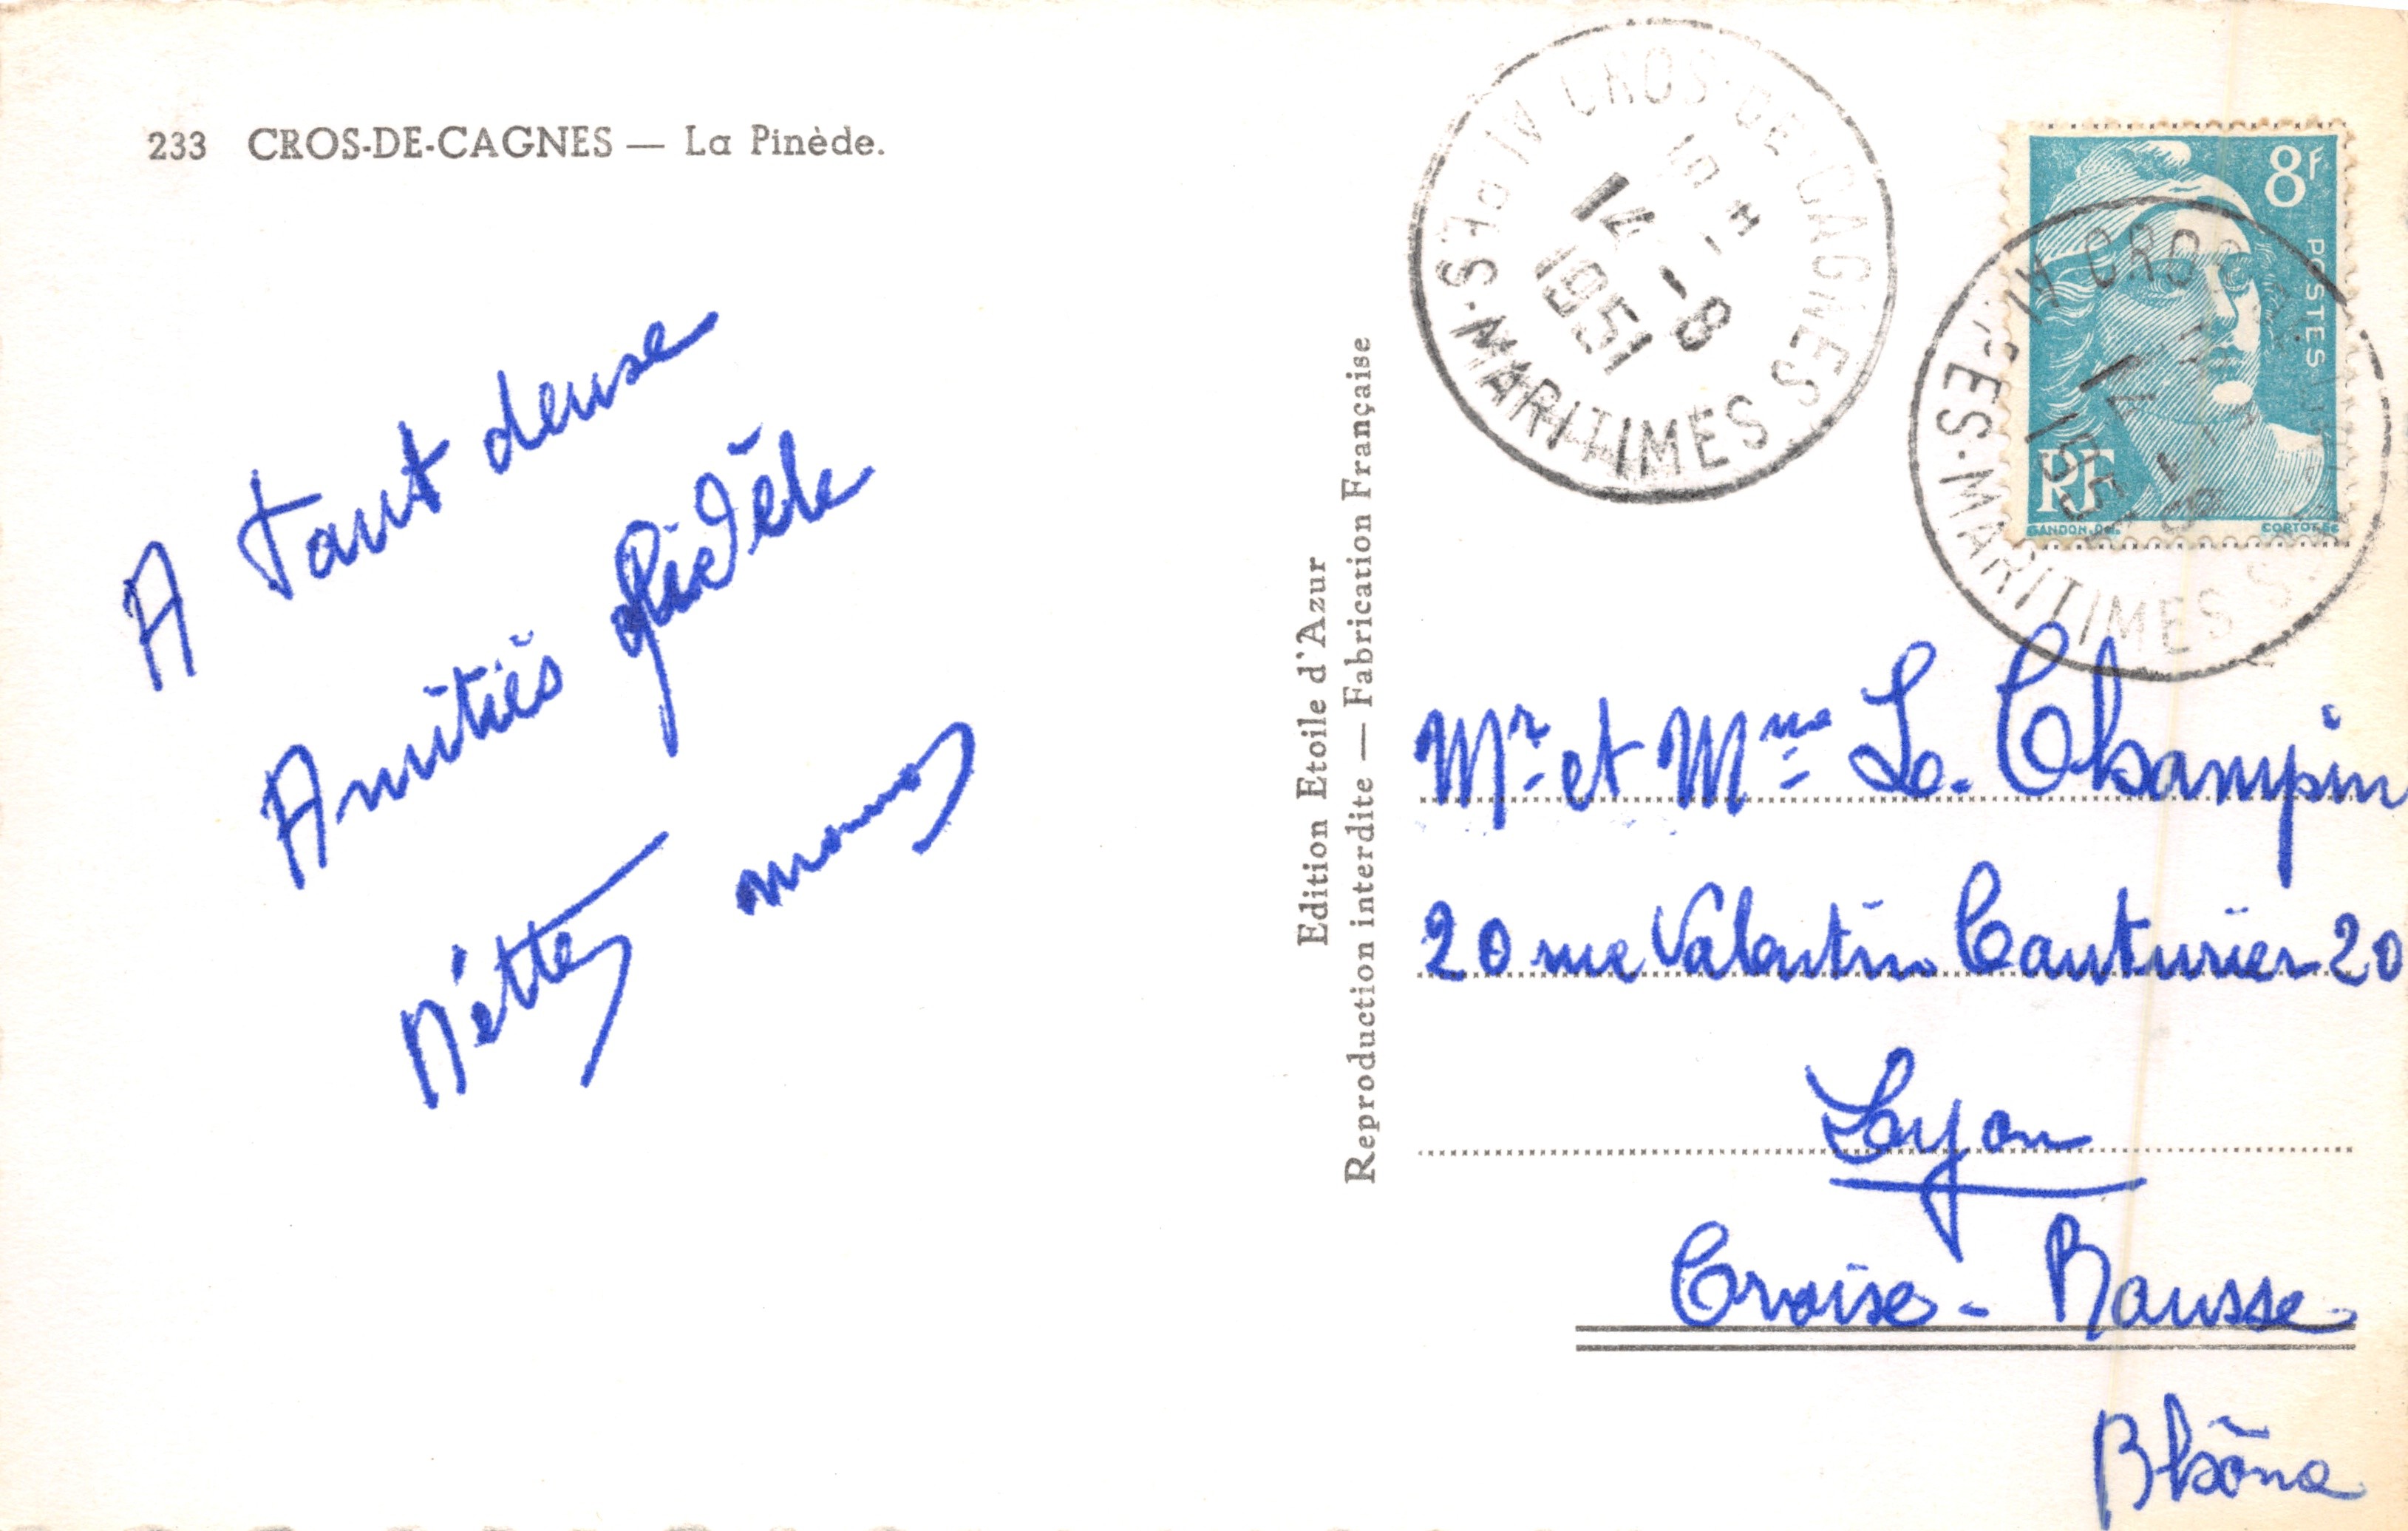 233 CROS-DE-CAGNES — La Pinède.
A tout deuse
Amitiés
Nétte
Edition Etoile d'Azur
Reproduction interdite — Fabrication Française
CROS-DE-CAGNES
ALPES-MARITIMES
14 -8
1951
8F
POSTES
RF
GANDON.DEL.
CORTOT.SC
CROS
PES-MARITIMES
14 -8
Mr et Mme Le Champin
20 rue Valentin Couturier 20
Lyon
Croise-Rousse
Rhône